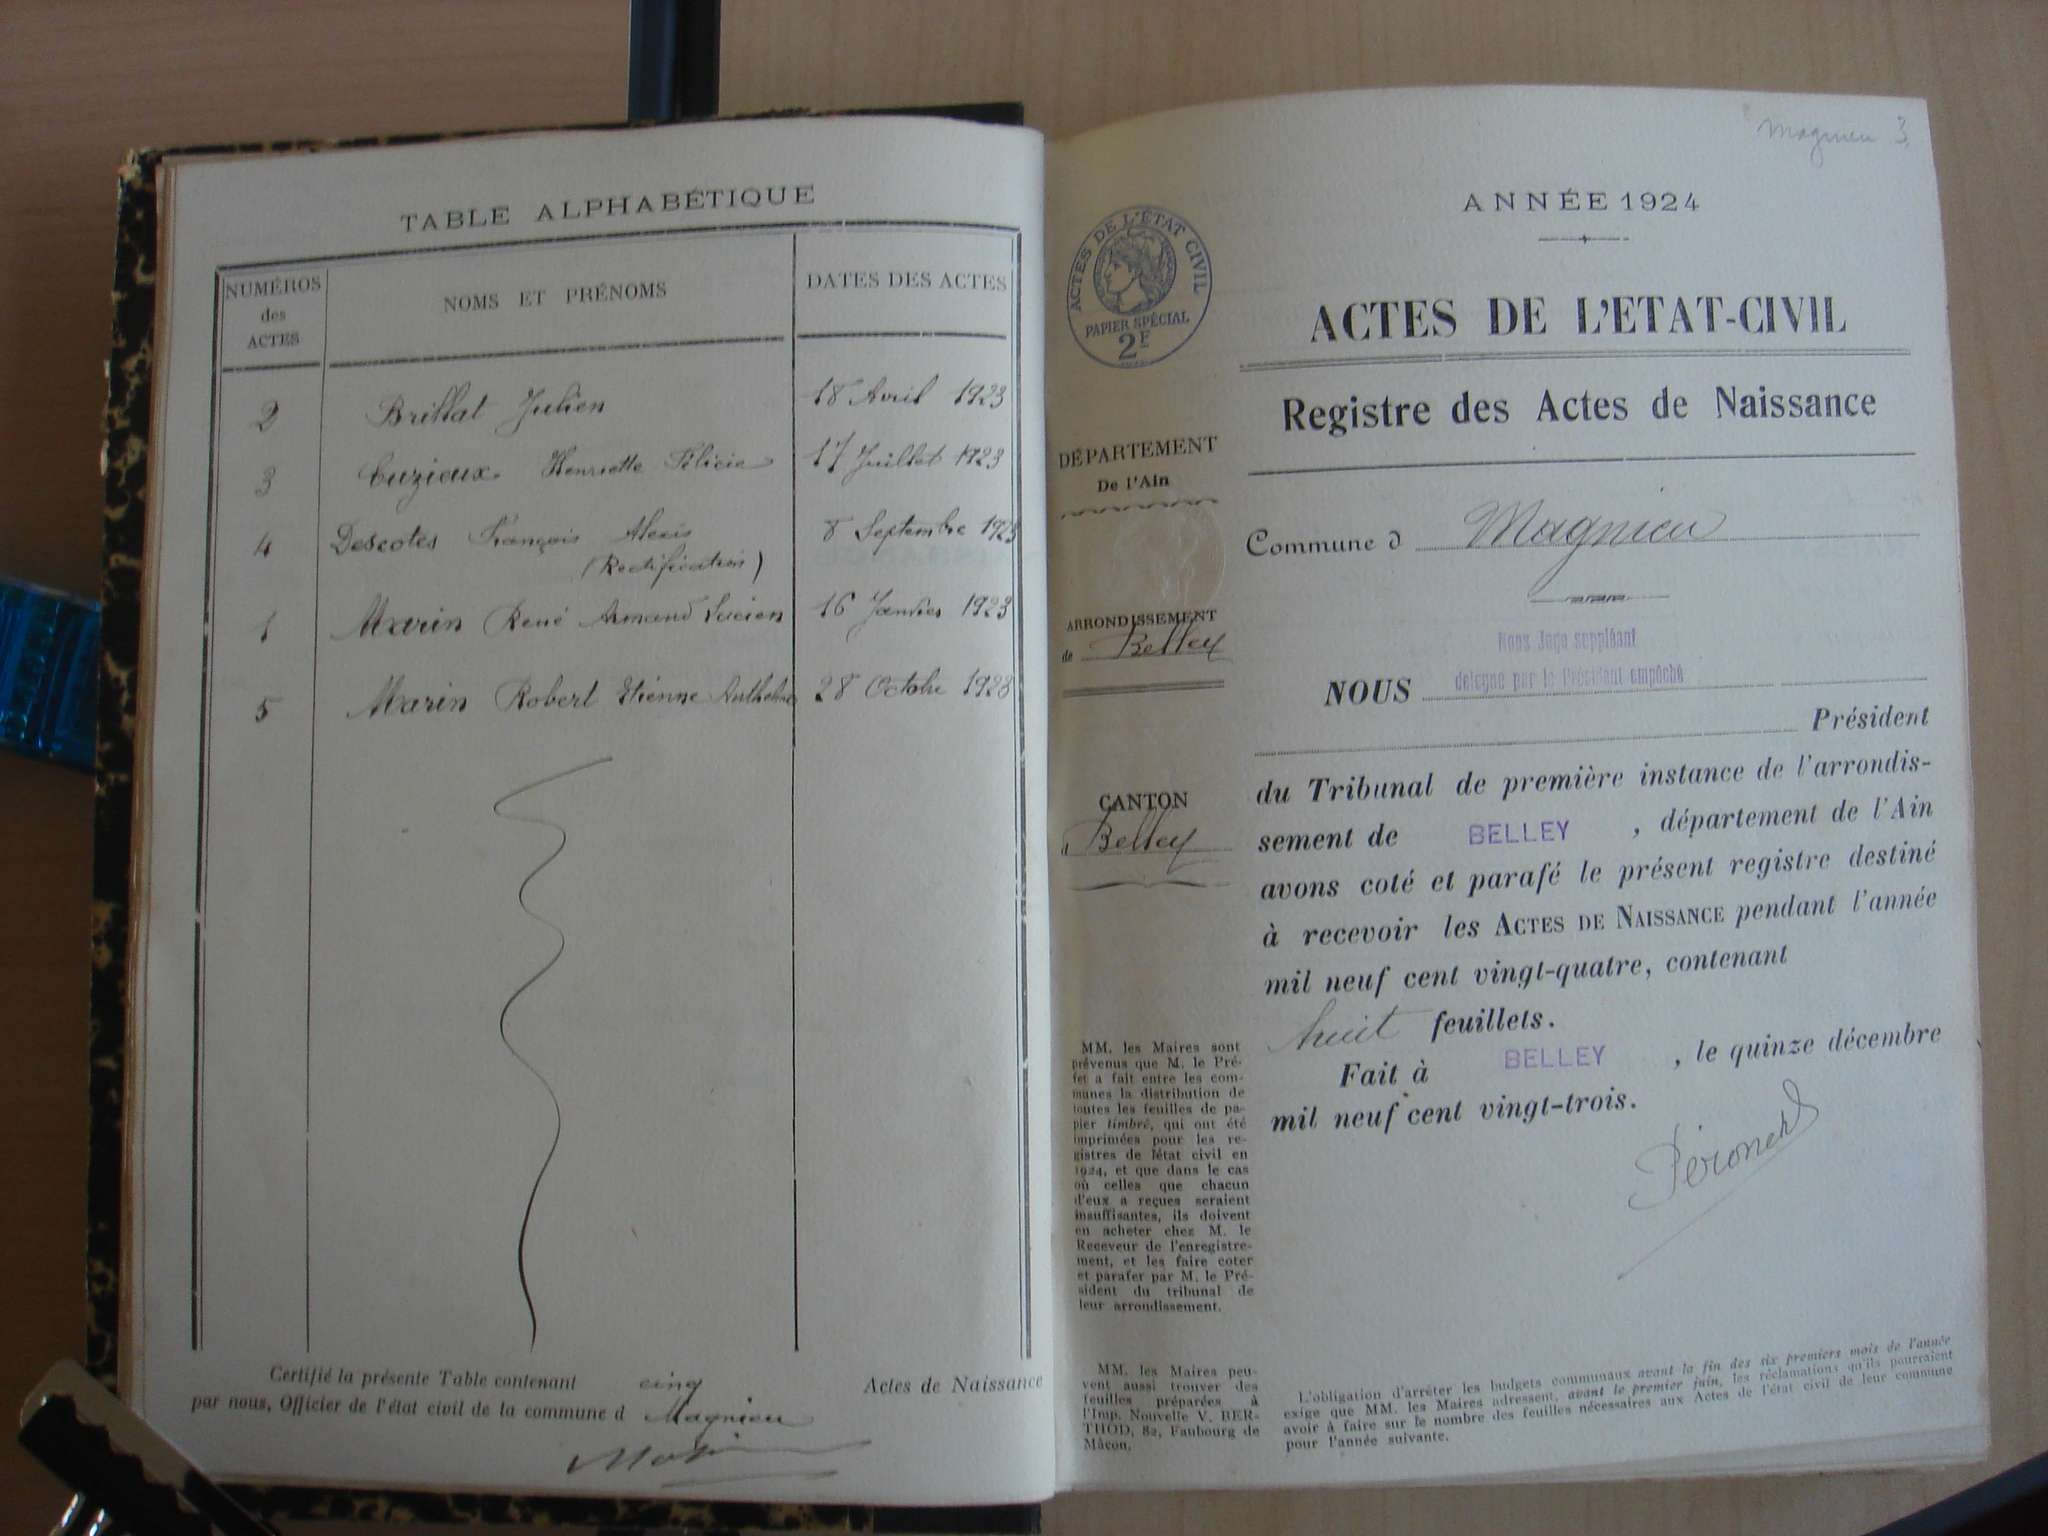 TABLE ALPHABÉTIQUE
NUMÉROS des ACTES
NOMS ET PRÉNOMS
DATES DES ACTES
2 Brillat Julien 18 Avril 1923
3 Cuzieux Henriette Félicie 17 Juillet 1923
4 Descotes François Alexis 8 Septembre 1923
(Rectification)
1 Marin René Armand Lucien 16 Janvier 1923
5 Marin Robert Etienne Anthelme 28 Octobre 1923
Certifié la présente Table contenant cinq Actes de Naissance
par nous, Officier de l'état civil de la commune d Magnieu
Magnieu 3
ANNÉE 1924
ACTES DE L'ÉTAT CIVIL
PAPIER SPÉCIAL
2F
ACTES DE L'ETAT-CIVIL
Registre des Actes de Naissance
DÉPARTEMENT
De l'Ain
Commune d Magnieu
ARRONDISSEMENT
de Belley
CANTON
d Belley
Nous Juge suppléant
NOUS délégué par le Président empêché
Président
du Tribunal de première instance de l'arrondis-
sement de BELLEY, département de l'Ain
avons coté et parafé le présent registre destiné
à recevoir les ACTES DE NAISSANCE pendant l'année
mil neuf cent vingt-quatre, contenant
huit feuillets.
Fait à BELLEY, le quinze décembre
mil neuf cent vingt-trois.
MM. les Maires sont
prévenus que M. le Pré-
fet a fait entre les com-
munes la distribution de
toutes les feuilles de pa-
pier timbré, qui ont été
imprimées pour les re-
gistres de l'état civil en
1924, et que dans le cas
où celles que chacun
d'eux a reçues seraient
insuffisantes, ils doivent
en acheter chez M. le
Receveur de l'enregistre-
ment, et les faire coter
et parafer par M. le Pré-
sident du tribunal de
leur arrondissement.
MM. les Maires peu-
vent aussi trouver des
feuilles préparées à
l'Imp. Nouvelle V. BER-
THOD, 82, Faubourg de
Mâcon.
L'obligation d'arrêter les budgets communaux avant la fin des six premiers mois de l'année
exige que MM. les Maires adressent, avant le premier juin, les réclamations qu'ils pourraient
avoir à faire sur le nombre des feuilles nécessaires aux Actes de l'état civil de leur commune
pour l'année suivante.